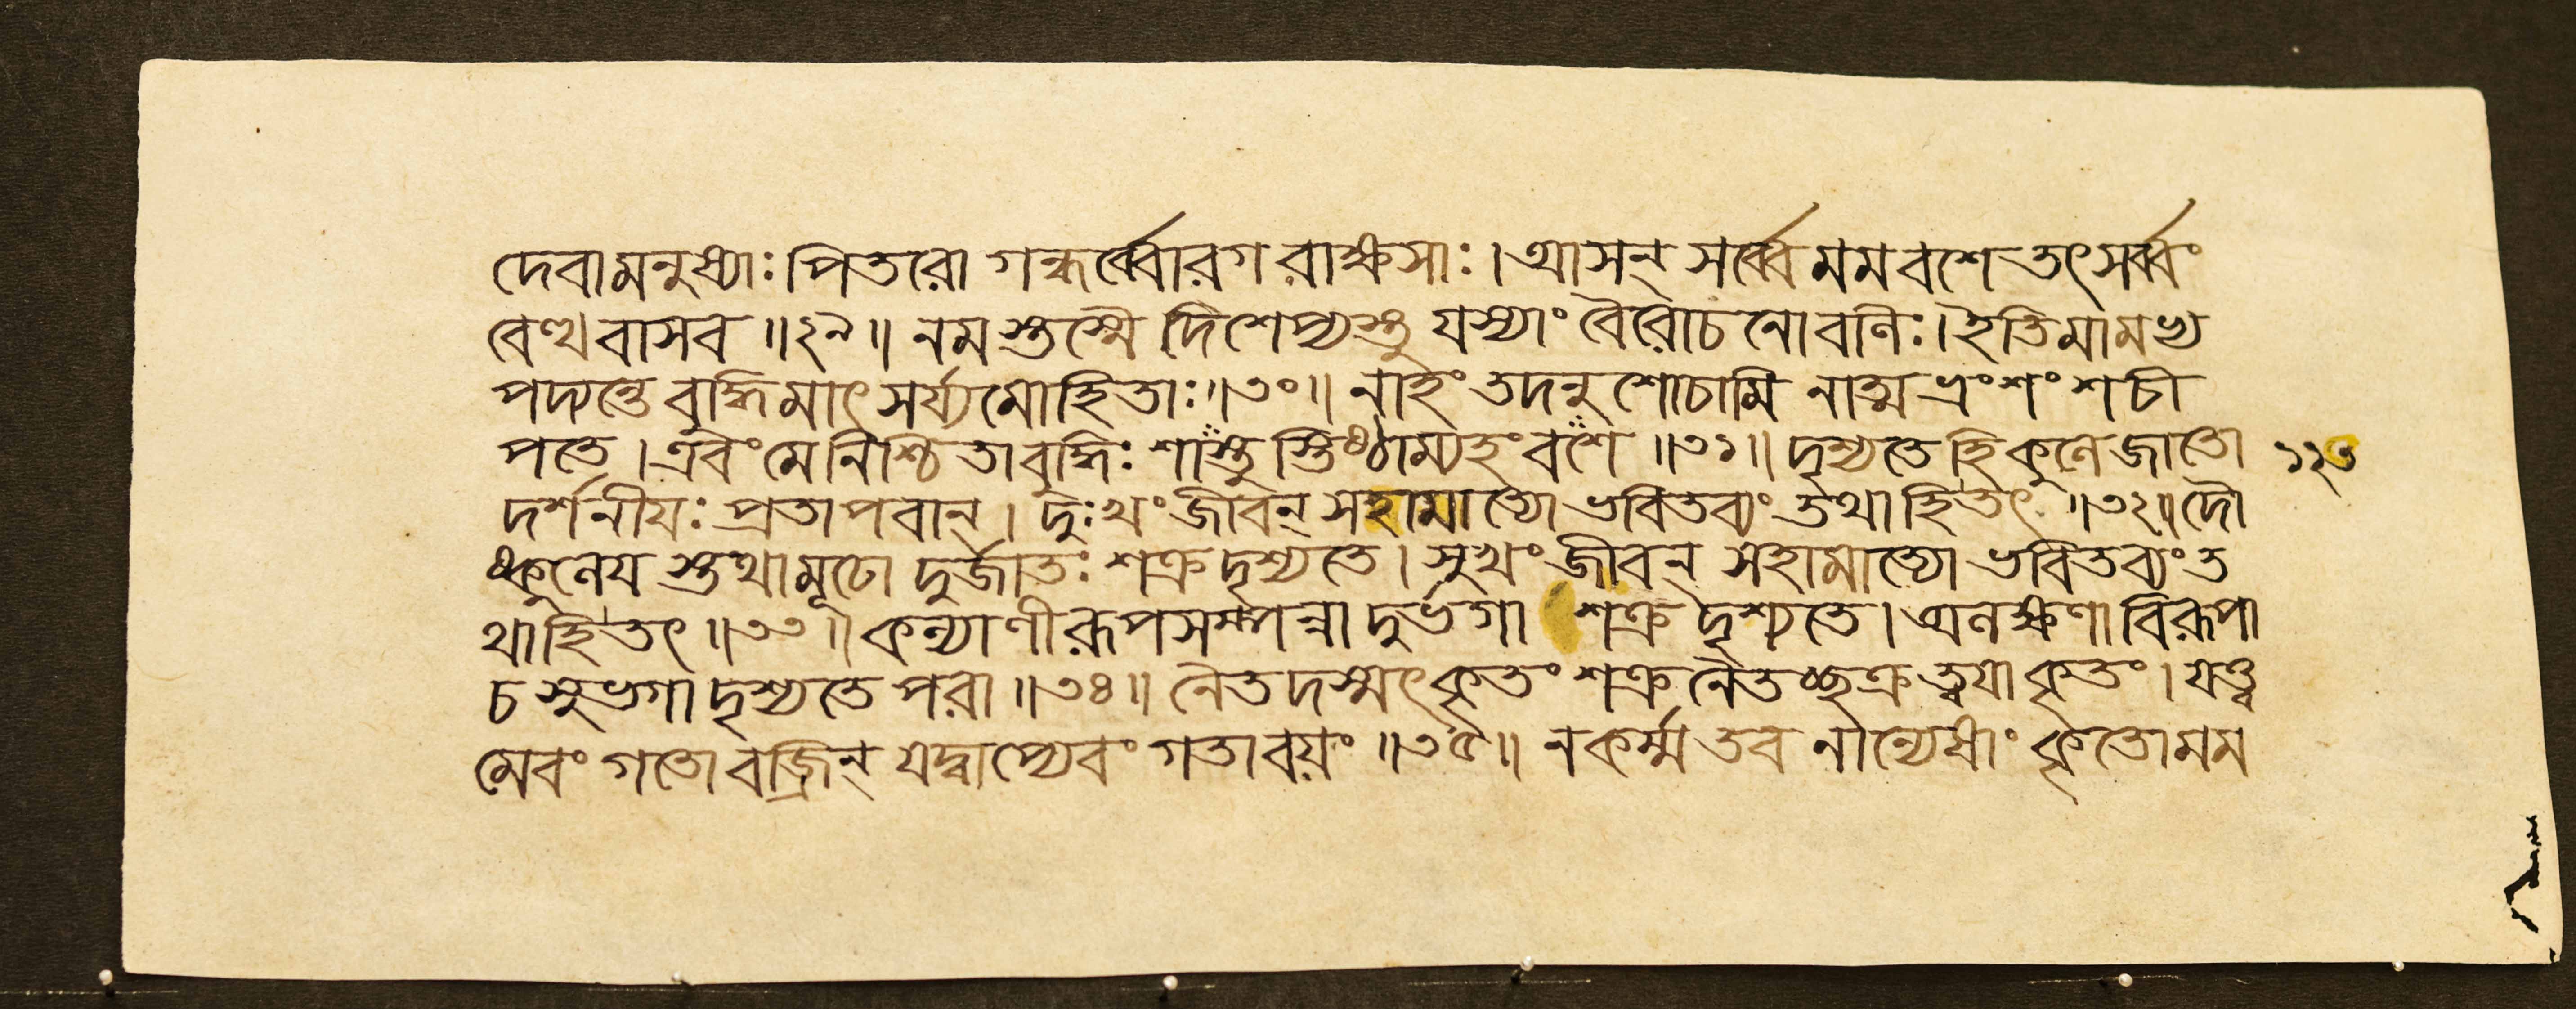 দেবামনুষ্যাঃ পিতরো গন্ধর্ব্বোরগ রাক্ষসাঃ। আসন্ সর্ব্বে মম বশে তৎ সর্ব্বং
বেত্থ বাসব ॥২৯॥ নমস্তস্মৈ দিশেপ্যস্তু যস্যাং বৈরোচনো বলিঃ। ইতি মামভ্য
পদ্যন্তে বুদ্ধিমাৎসর্য্যমোহিতাঃ ॥৩০॥ নাহং তদনুশোচামি নাত্ম ভ্রংশং শচী
পতে। এবং মে নিশ্চিতা বুদ্ধিঃ শাস্তুস্তিষ্ঠাম্যহং বশে ॥৩১॥ দৃশ্যতে হি কুলে জাতো
১২৩
দর্শনীয়ঃ প্রতাপবান্। দুঃখং জীবন্ সহামাত্যো ভবিতব্যং তথা হি তৎ ॥৩২॥ দৌ
ষ্কুলেয স্তথা মূঢো দুর্জাতঃ শক্র দৃশ্যতে। সুখং জীবন্ সহামাত্যো ভবিতব্যং ত
থা হি তৎ ॥৩৩॥ কল্যাণী রূপসম্পন্না দুর্ভগা শক্র দৃশ্যতে। অলক্ষণা বিরূপা
চ সুভগা দৃশ্যতে পরা ॥৩৪॥ নৈতদস্মৎকৃতং শক্র নৈতচ্ছক্র ত্বযা কৃতং। যত্ত্ব
মেবং গতো বজ্রিন্ যদ্বাপ্যেবং গতা বয়ং ॥৩৫॥ ন কর্ম্ম তব নান্যেষাং কৃতো মম